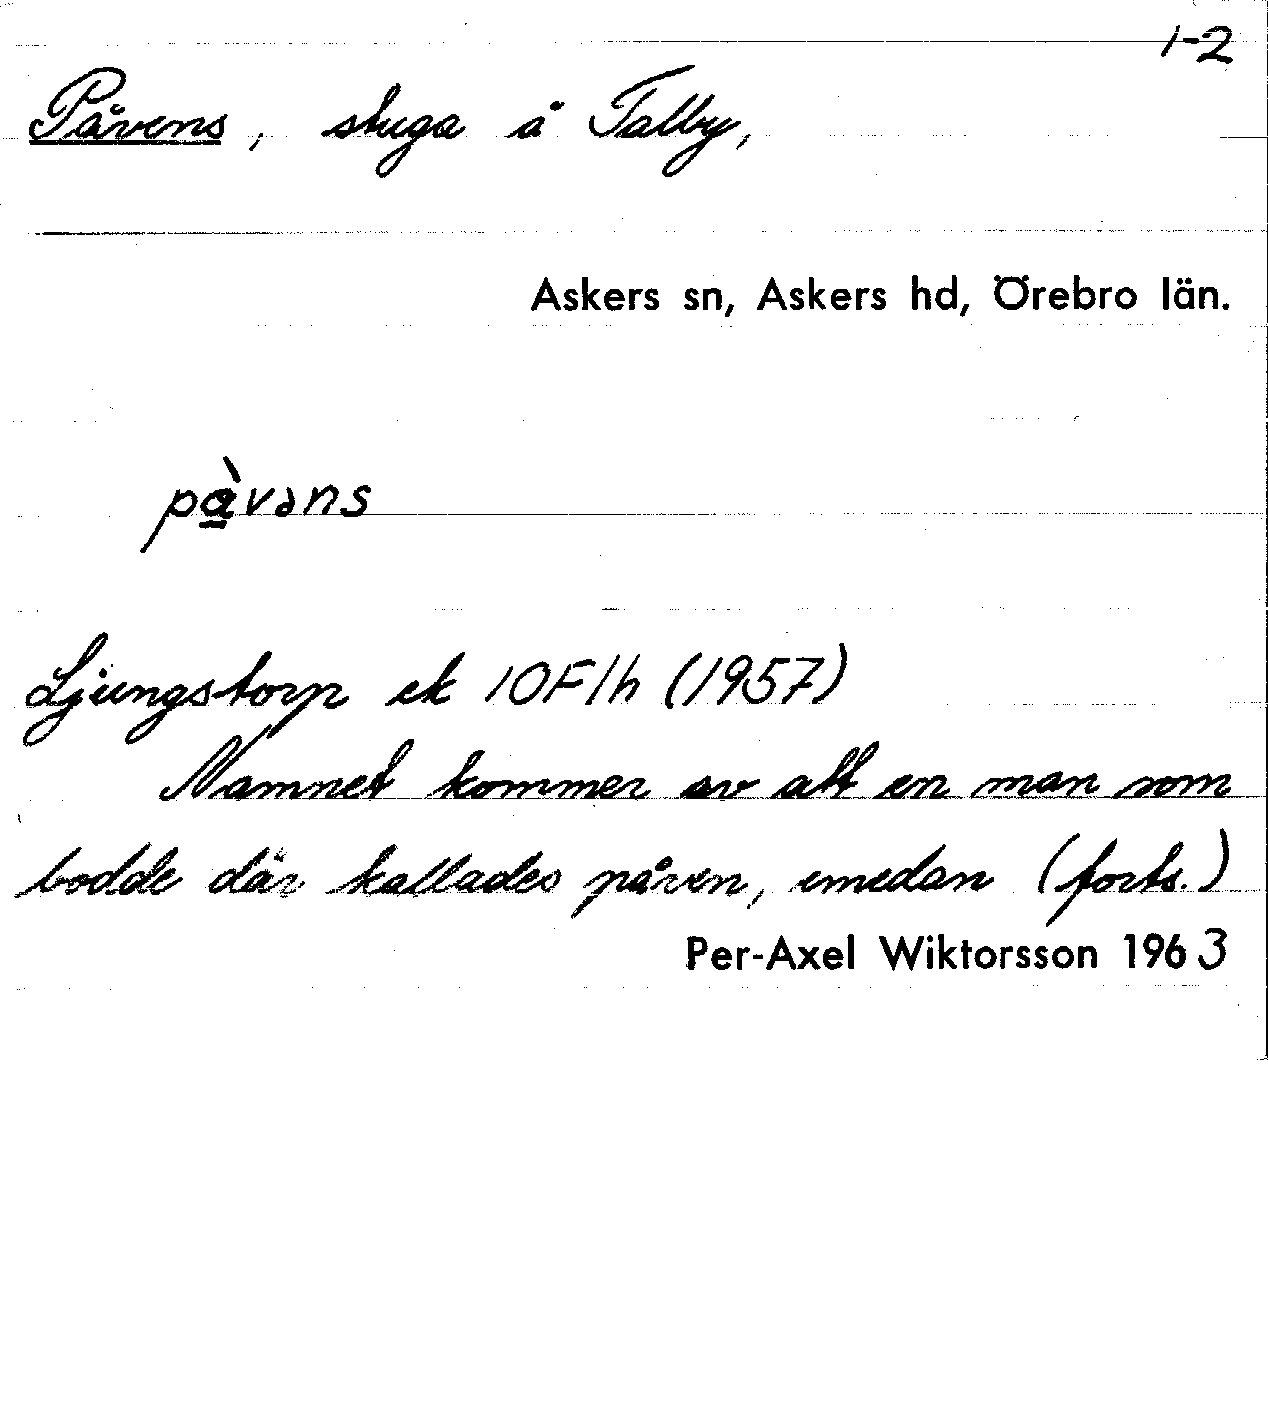 1-2
Påvens, stuga å Talby,
Askers sn, Askers hd, Örebro län.
pàvəns
Ljungstorp ek 10F1h (1957)
Namnet kommer av att en man som
bodde där kallades påven, emedan (forts.)
Per-Axel Wiktorsson 1963